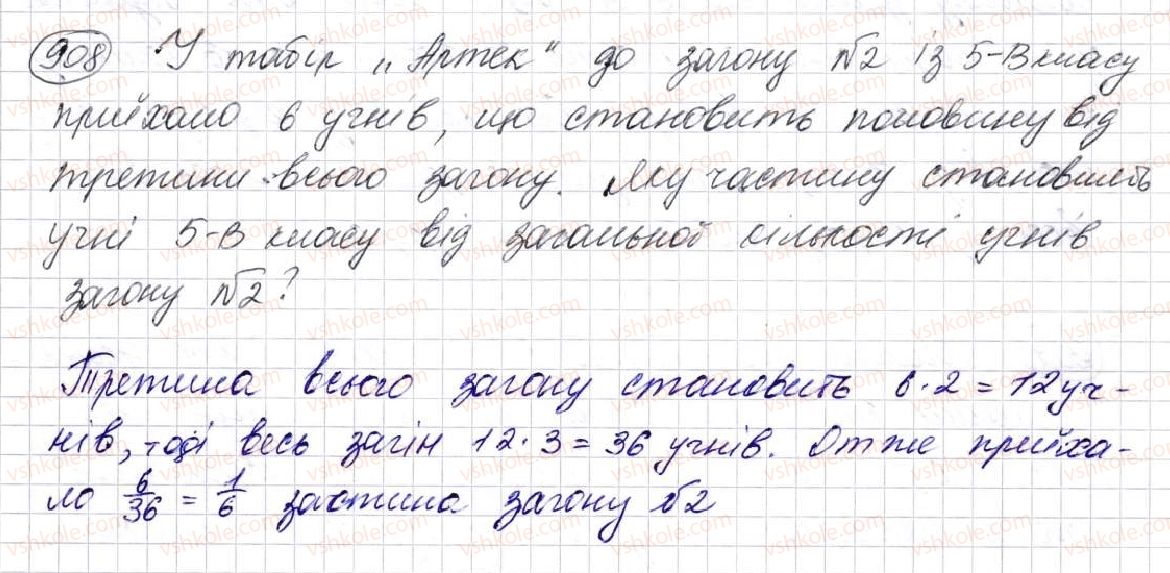 908 У табір „Артек" до загону №2 із 5-В класу
приїхало 6 учнів, що становить половину від
третини всього загону. Яку частину становлять
учні 5-В класу від загальної кількості учнів
загону №2?
Третина всього загону становить 6·2=12 уч-
нів, тоді весь загін 12·3=36 учнів. Отже приїха-
ло 6/36 = 1/6 частина загону №2